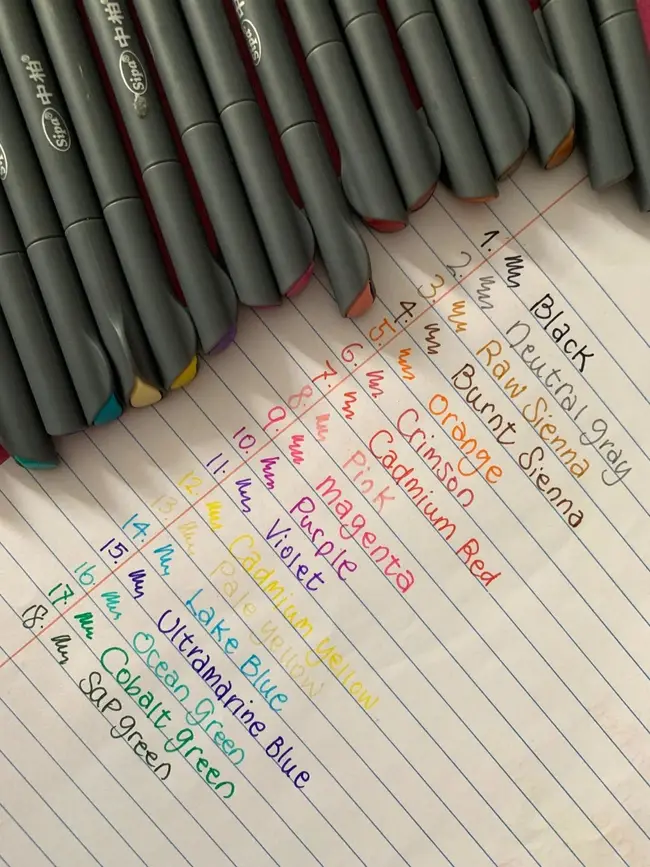 Sipa 中柏
Sipa 中柏
Sipa
1. Black
2. Neutral gray
3. Raw Sienna
4. Burnt Sienna
5. Orange
6. Crimson
7. Cadmium Red
8. Pink
9. magenta
10. Purple
11. Violet
12. Cadmium yellow
13. Pale yellow
14. Lake Blue
15. Ultramarine Blue
16. Ocean Green
17. Cobalt green
18. Sap green